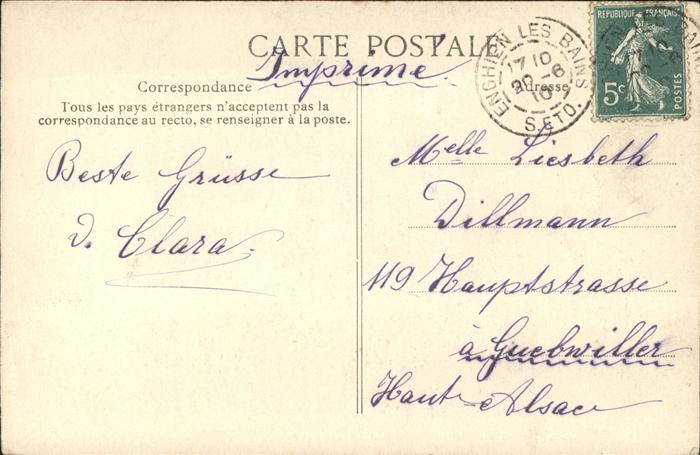 CARTE POSTALE
Imprimé
Correspondance
Adresse
Tous les pays étrangers n'acceptent pas la
correspondance au recto, se renseigner à la poste.
ENGHIEN LES BAINS
17 10
20 - 6
10
S. ET O.
REPUBLIQUE FRANÇAISE
5c
POSTES
Beste Grüsse
v. Clara.
Melle Liesbeth
Dillmann
119 Hauptstrasse
à Guebwiller
Haute-Alsace